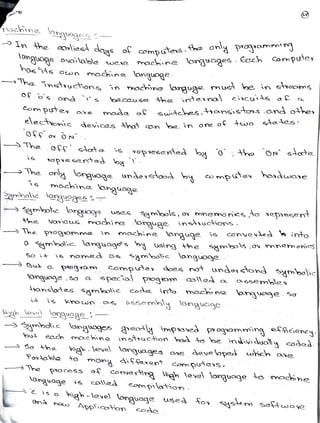 Machine languages :-
→ In the earliest days of computers. the only programming
language available were machine languages. Each computer
has its own machine language
→ The instructions in machine languge must be in streams
of 0's and 1's because the internal circuits of a
computer are made of switches, transistors and other
electronic devices that can be in one of two states:
'OFF' or 'ON'.
→ The OFF state is represented by '0', the 'ON' state
is represented by '1'
→ The only language understood by computer hardware
is machine language
Symbolic languages :-
→ Symbolic language uses symbols, or mnemonics, to represent
the various machine language instructions.
→ The programme in machine language is converted into
a symbolic language's by using the symbols, or mnemonics
So it is named as symbolic language.
→ But a program computer does not understand symbolic
language. So a special program called a assembler
translates symbolic code into machine language. So
it is known as assembly language
High level language :-
→ Symbolic languages greatly improved programming efficiency.
but each machine instruction had to be individually coded.
→ So the high-level languages are developed which are
Portable to many different computers.
→ The process of converting High level language to machine
language is called compilation.
→ C is a high-level language used for system software
and now Application code.